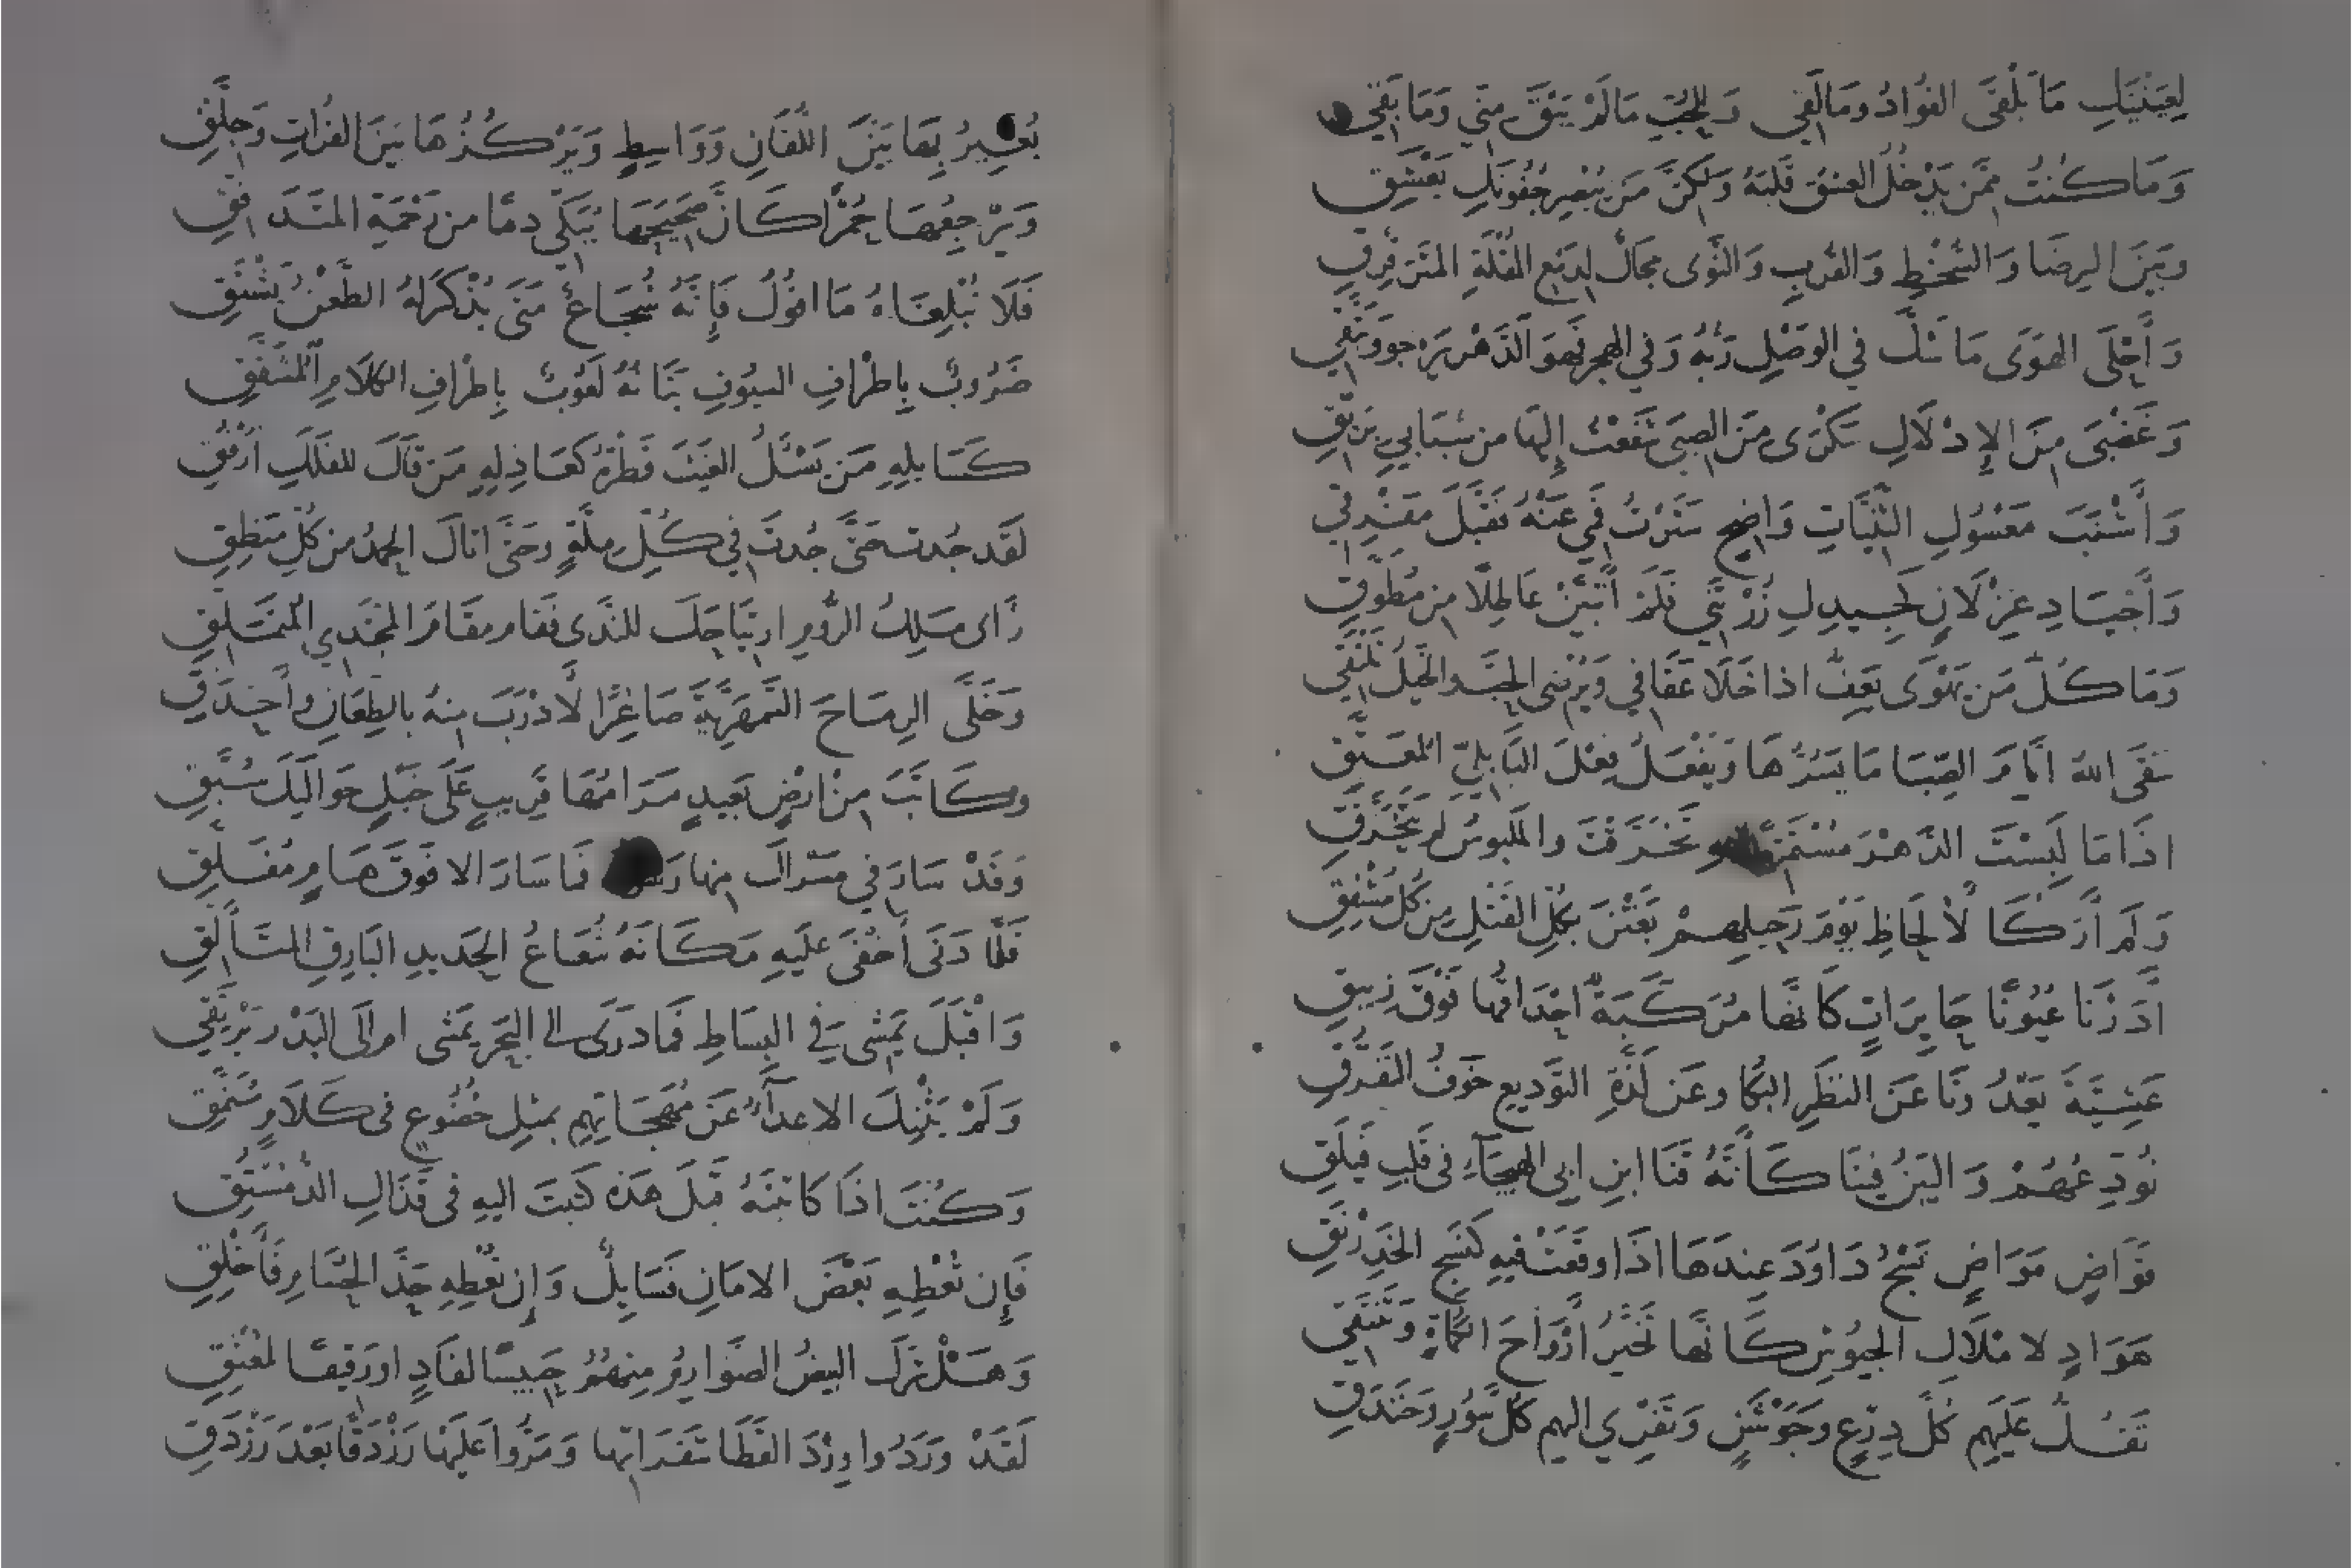 لِعَيْنَيْكِ مَا يَلْقَى الفُوَادُ وَمَا لَقِي وَلِلْحُبِّ مَا لَمْ يَبْقَ مِنِّي وَمَا بَقِي
وَمَا كُنْتُ مِمَّن يَدْخُلُ العِشْقُ قَلْبَهُ وَلٰكِنَّ مَن يُبْصِر جُفُونَكِ يَعْشَقِ
وَبَيْنَ الرِضَا وَالسُّخْطِ وَالقُرْبِ وَالنَّوَى مَجَالٌ لِدَمْعِ المُقْلَةِ المُتَرَقْرِقِ
وَأَحْلَى الهَوَى مَا شَكَّ فِي الوَصْلِ رَبُّهُ وَفِي الهَجْرِ فَهوَ الدَّهْرَ يَرْجو وَيَتَّقِي
وَغَضْبَى مِنَ الإِدْلَالِ سَكْرَى مِنَ الصِبَى شَفَعْتُ إِلَيْهَا مِن شَبَابِي بِرَيِّقِ
وَأَشْنَبَ مَعْسُولِ الثَّنِيَّاتِ وَاضِحٍ سَتَرْتُ فَمِي عَنْهُ فَقَبَّلَ مَفْرِقِي
وَأَجْيَادِ غِزْلَانٍ كَجِيدِكِ زُرْنَنِي فَلَمْ أَتَبَيَّنْ عَاطِلًا مِن مُطَوَّقِ
وَمَا كُلُّ مَن يَهْوَى يَعِفُّ اذا خَلَا عَفَافِي وَيُرْضِي الحِبَّ والخَيْلُ تَلْتَقِي
سَقَى اللهُ ايَّامَ الصِّبَا مَا يَسُرُّهَا وَيَفْعَلُ فِعْلَ البَابِلِيِّ المُعَتَّقِ
اذَا مَا لَبِسْتَ الدَّهْرَ مُسْتَمْتِعًا بِهِ تَخَرَّقْتَ والمَلْبوسُ لم يَتَخَرَّقِ
وَلَم أَرَ كَالأَلْحَاظِ يَوْمَ رَحِيلِهِمْ بَعَثْنَ بِكُلِّ القَتْلِ مِن كُلِّ مُشْفِقِ
أَدَرْنَ عُيُونًا حَايِرَاتٍ كَأَنَّهَا مُرَكَّبَةٌ احْدَاقُهَا فَوْقَ زِيبَقِ
عَشِيَّةَ يَعْدُونَا عَنَ النَّظَرِ البُكَا وعَن لَذَّةِ التَّوْدِيعِ خَوْفُ التَّفَرُّقِ
نُوَدِّعُهُمْ وَالبَيْنُ فِينَا كَأَنَّهُ قَنَا ابنِ ابِي الهَيْجَآءِ فِي قَلْبِ فَيْلَقِ
قَوَاضٍ مَوَاضٍ نَسْجُ دَاوُدَ عِندَهَا اذَا وقَعَتْ فِيهِ كَنَسْجِ الخَدَرْنَقِ
هَوَادٍ لامْلَاكِ الجُيُوشِ كَانَّهَا تَخَيَّرُ أَرْوَاحَ الكُمَاةِ وَتَنْتَقِي
تَقُدُّ عَلَيْهِم كُلَّ دِرْعٍ وجَوْشَنٍ وَتَفْرِي اليهِم كُلَّ سُورٍ وَخَنْدَقِ
يُغِيرُ بِهَا بَيْنَ اللُّقَانِ وَوَاسِطٍ وَيَرْكُزُهَا بَيْنَ الفُرَاتِ وَجِلَّقِ
وَيَرْجِعُهَا حُمْرًا كَأَنَّ صَحِيحَهَا يُبَكِّي دمًا من رَحْمَةِ المُتَدَقِّقِ
فَلَا تُبْلِغَاهُ مَا اقُولُ فَإِنَّهُ شُجَاعٌ مَتَى يُذْكَر لهُ الطَّعْنُ يَشْتَقِ
ضَرُوبٌ بِاطْرَافِ السُيُوفِ بَنَانُهُ لَعُوبٌ بِاطْرَافِ الكَلَامِ المُشَقَّقِ
كَسَايِلِهِ مَن يَسْئَلُ الغَيْثَ قَطْرَةً كَعَاذِلِهِ مَن قَالَ لِلفَلَكِ ارْفُقِ
لقَد جُدتَ حَتَّى جُدتَ فِي كُلِّ مِلَّةٍ وحَتَّى اتَاكَ الحَمدُ من كُلِّ مَنْطِقِ
رَاى مَلِكُ الرُّومِ ارتِيَاحَكَ للنَّدَى فَقَامَ مقَامَ المُجْتَدِي المُتَمَلِّقِ
وَخَلَّى الرِمَاحَ السَّمهَرِيَّةَ صَاغِرًا لأَدْرَبَ مِنهُ بالطِعَانِ وأَحْذَقِ
وكَاتَبَ مِنْ ارْضٍ بَعيدٍ مَرَامُهَا قَرِيبٍ عَلَى خَيْلٍ حَوَالَيْكَ سُبَّقِ
وَقَدْ سَارَ فِي مَسْرَاكَ مِنها رَسُولُهُ فَمَا سَارَ الا فَوْقَ هَامٍ مُفَلَّقِ
فَلَمَّا دَنَى أَخْفَى عَلَيهِ مَكَانَهُ شُعَاعُ الحَدِيدِ البَارِقِ المُتَأَلِّقِ
وَاقْبَلَ يَمْشِي فِي البِسَاطِ فَمَا دَرَى الى البَحْرِ يَمْشِي ام الَى البَدْرِ يَرْتَقِي
وَلَمْ يَثْنِكَ الاعدآءُ عَن مُهَجَاتِهِم بمثلِ خُضُوعٍ فِي كَلَامٍ مُنَمَّقِ
وَكُنْتَ اذَا كَاتَبْتَهُ قَبْلَ هَذِه كَتَبْتَ اليهِ فِي قَذَالِ الدُّمُسْتُقِ
فَإِن تُعْطِهِ بَعْضَ الامَانِ فَسَايِلٌ وَإِن تُعْطِهِ حَدَّ الحُسَامِ فَأَخْلِقِ
وَهَلْ تَرَكَ البِيضُ الصَّوَارِمُ مِنهُمُ حَبِيسًا لفَادٍ اورَقِيقًا لمُعْتِقِ
لَقَدْ وَرَدُوا وِرْدَ القَطَا شَفَرَاتِهَا وَمَرُّوا عَلَيْهَا رَزْدَقًا بَعْدَ رَزْدَقِ